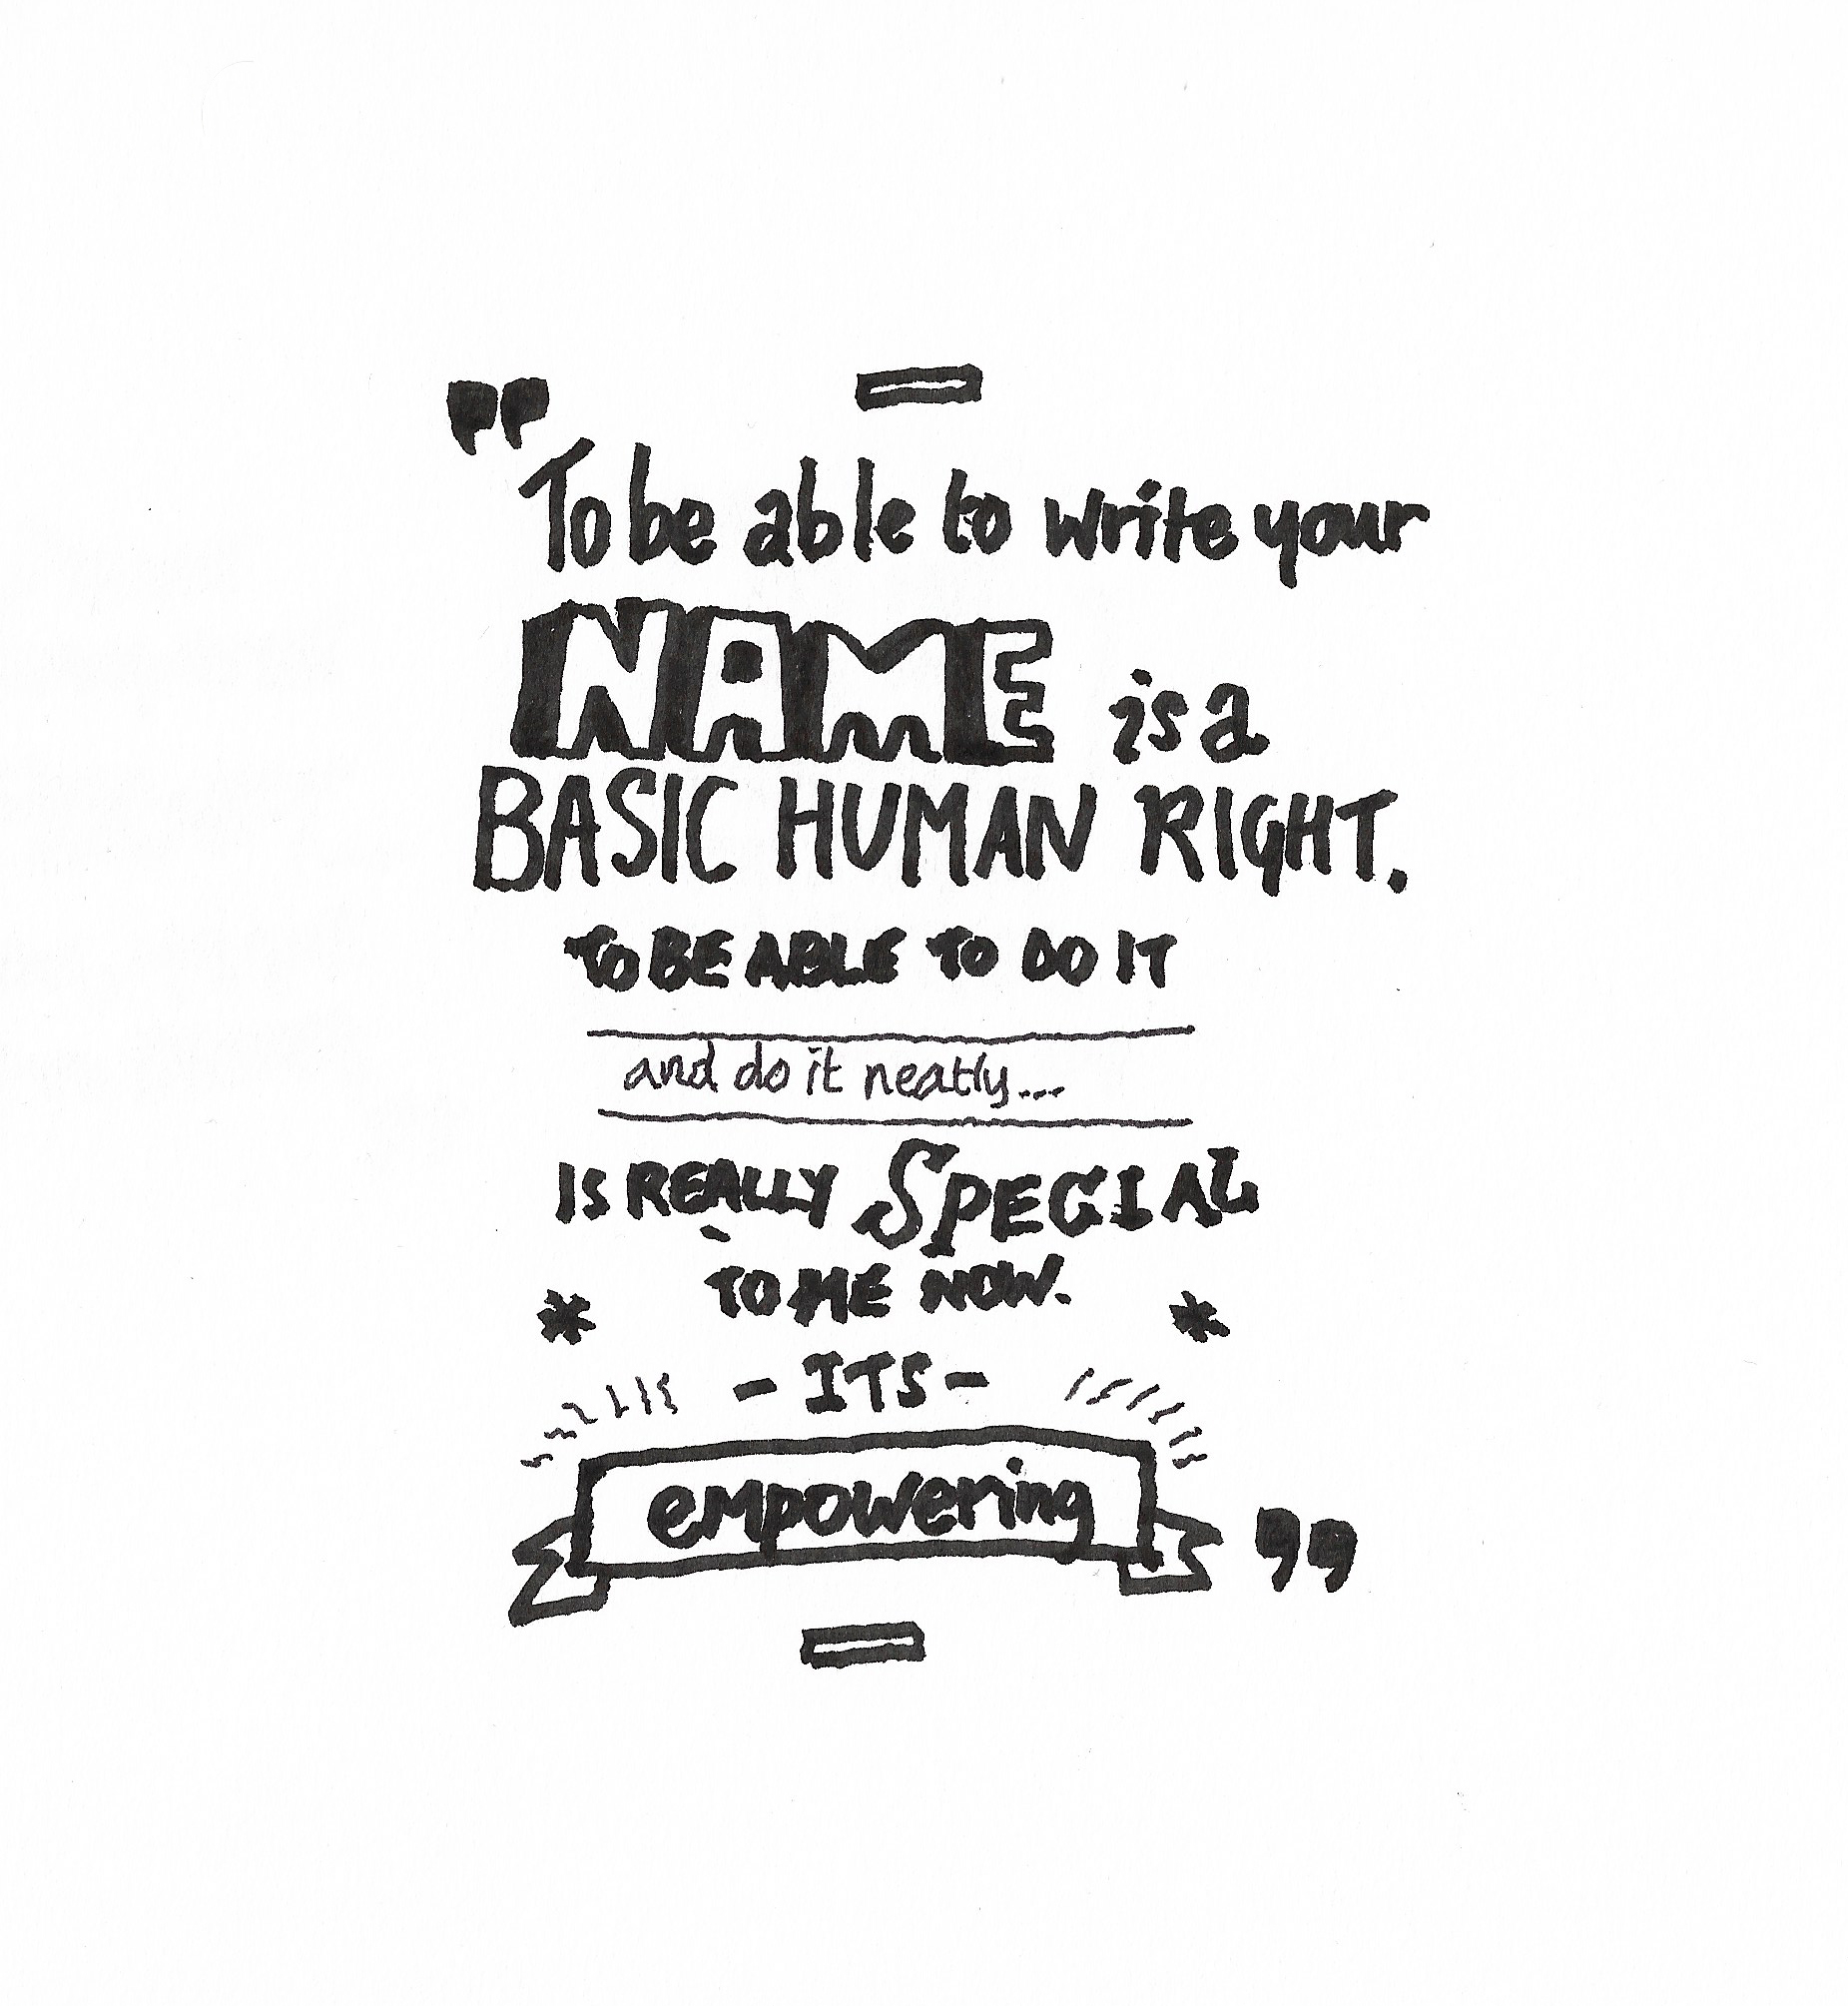 "To be able to write your
NAME is a
BASIC HUMAN RIGHT.
TO BE ABLE TO DO IT
and do it neatly...
IS REALLY SPECIAL
TO ME NOW.
* *
- ITS -
empowering"